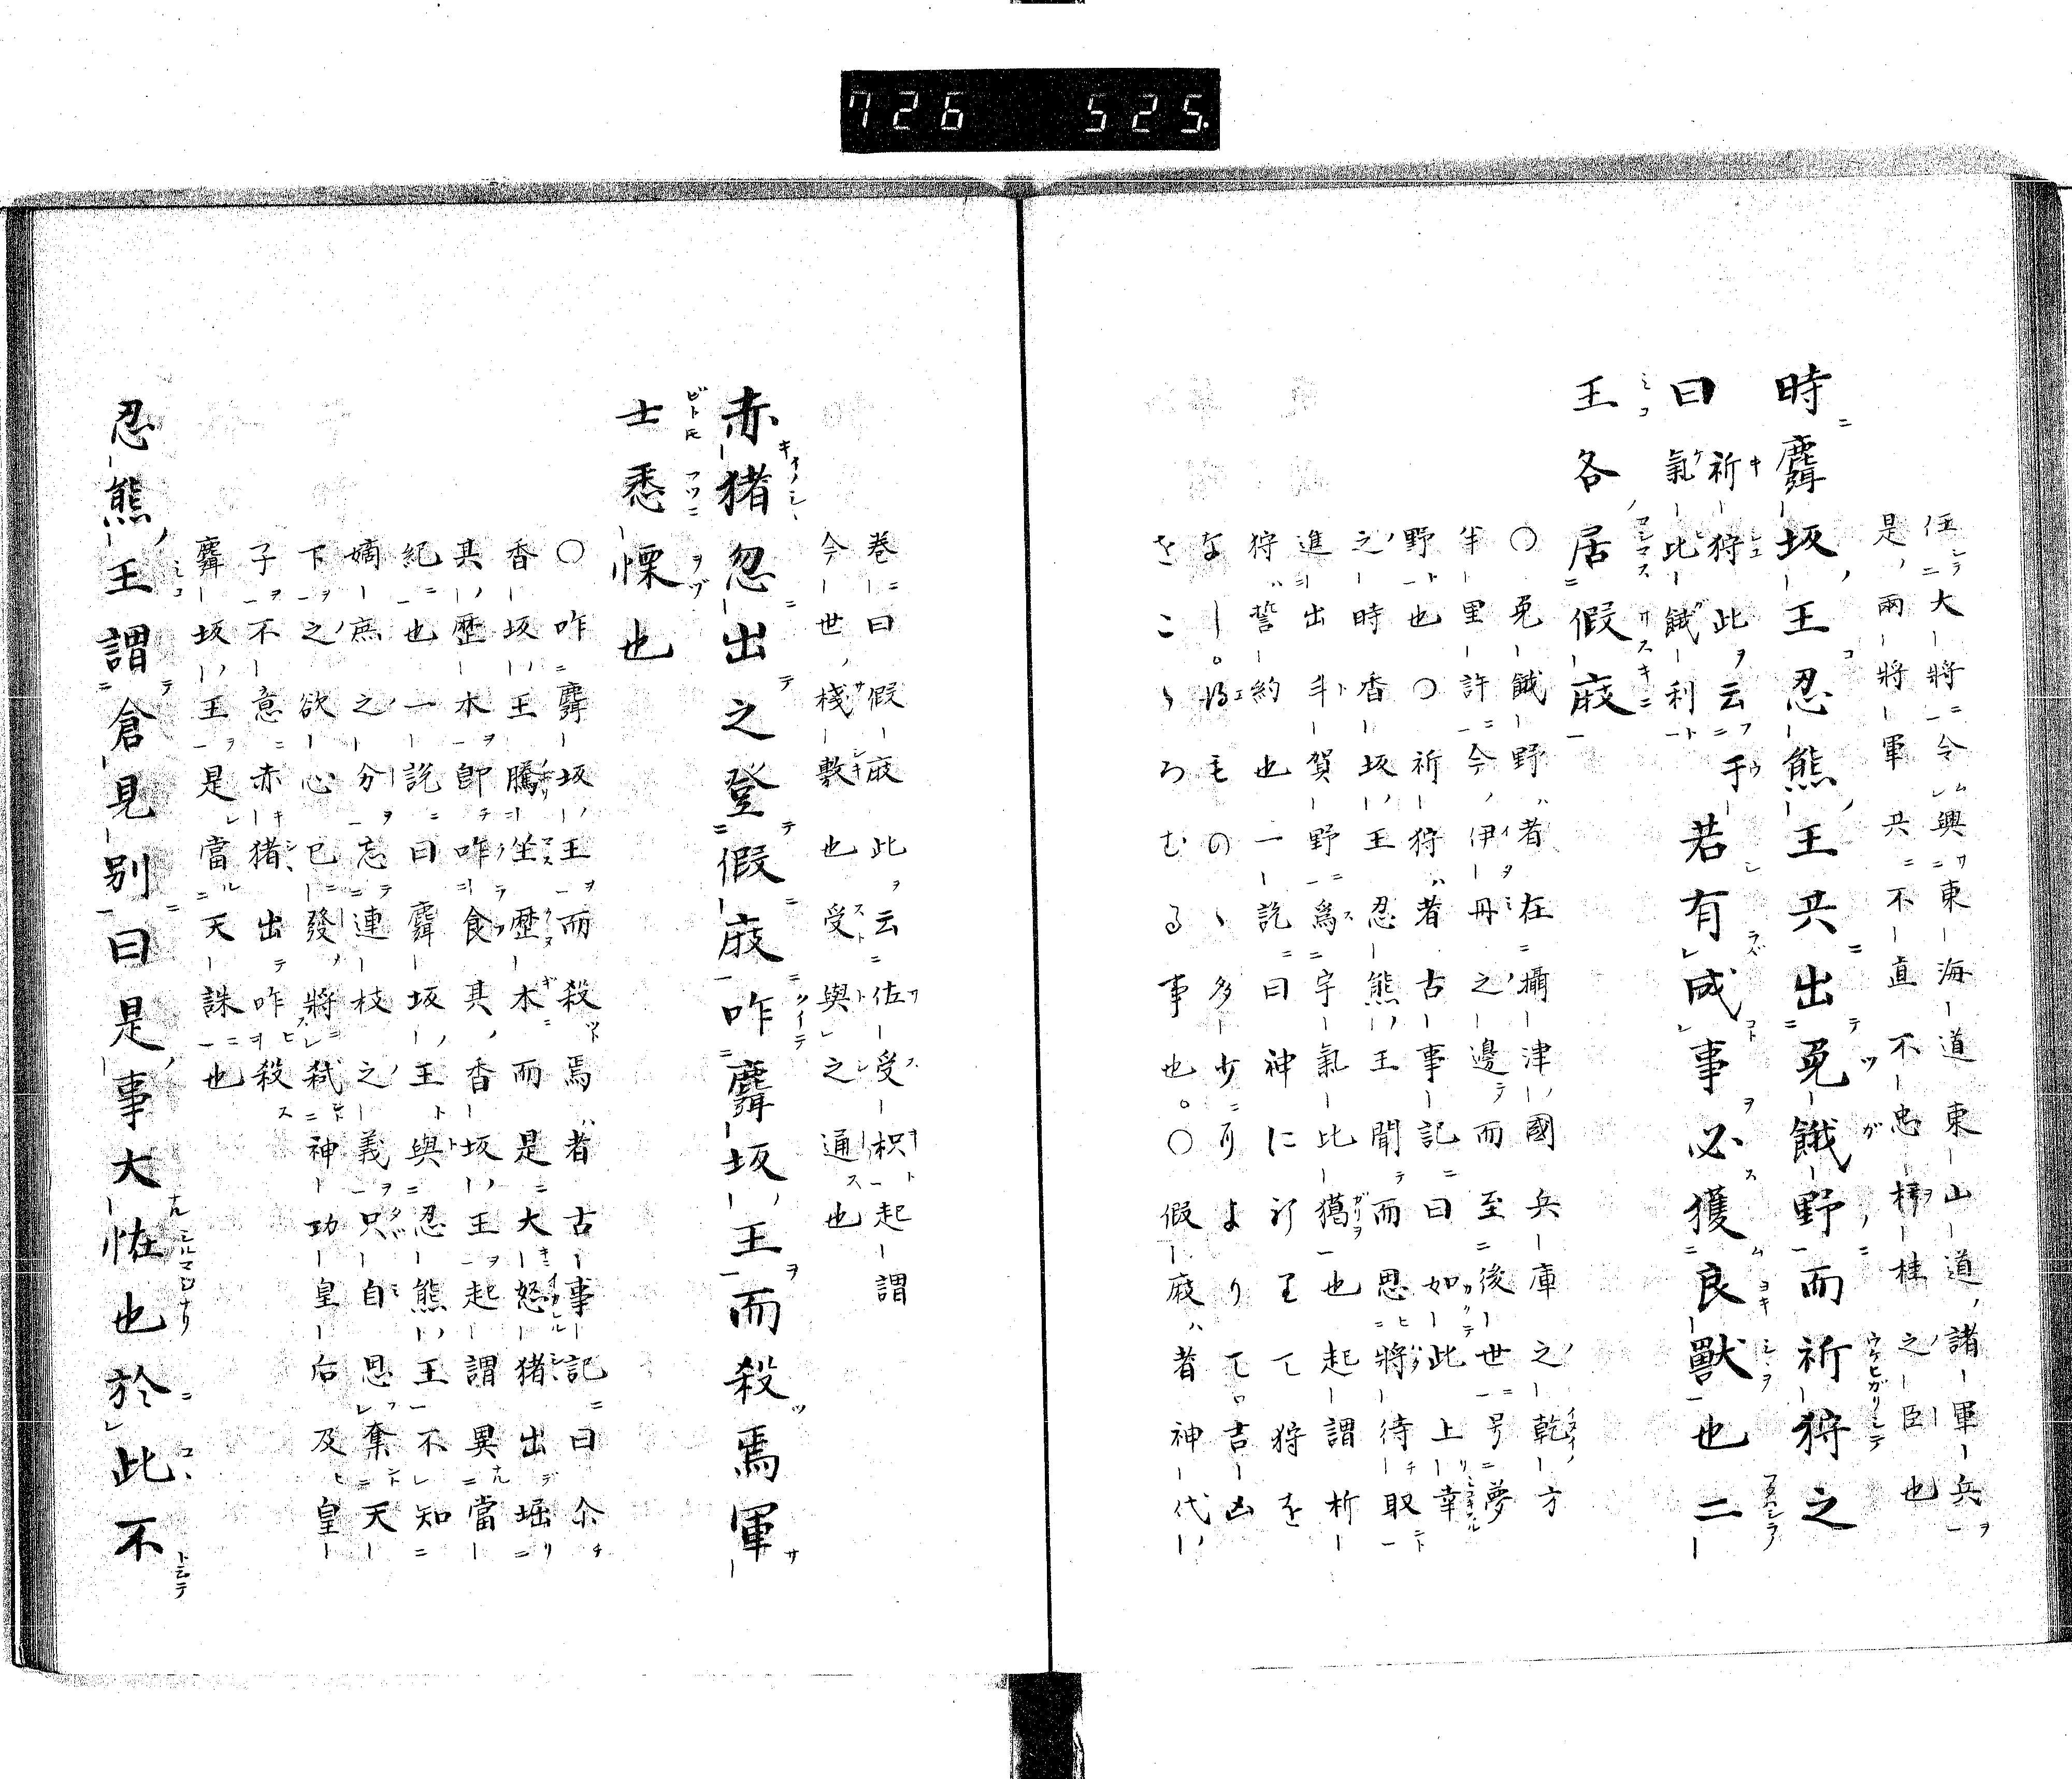 726 525.
任大將令興東海道東山道諸軍兵
是兩將軍共不直不忠棟桂之臣也
時麛坂王忍熊王共出菟餓野而祈狩之
曰祈狩此云手氣比餓利若有成事必獲良獸也二
王各居假庪
○菟餓野者在攝津國兵庫之乾方
半里許今伊丹之邊而至後世号夢
野也○祈狩者古事記曰如此上幸
之時香坂王忍熊王聞而思將待取
進出斗賀野爲宇氣比獦也起謂祈
狩誓約也一訖曰神に祈りて狩を
なし。得ものゝ多少によりて。吉凶
をこゝろむる事也。○假庪者神代
卷曰假庪此云佐受枳起謂
今世棧敷也受與之通也
赤猪忽出之登假庪咋麛坂王而殺焉軍
士悉慄也
○咋麛坂王而殺焉者古事記曰尒
香坂王騰坐歴木而是大怒猪出堀
其歴木卽咋食其香坂王起謂異當
紀也一訖曰麛坂王與忍熊王不知
嫡庶之分忘連枝之義只自思奪天
下之欲心已發將弒神功皇后及皇
子不意赤猪出咋殺
麛坂王是當天誅也
忍熊王謂倉見別曰是事大恠也於此不